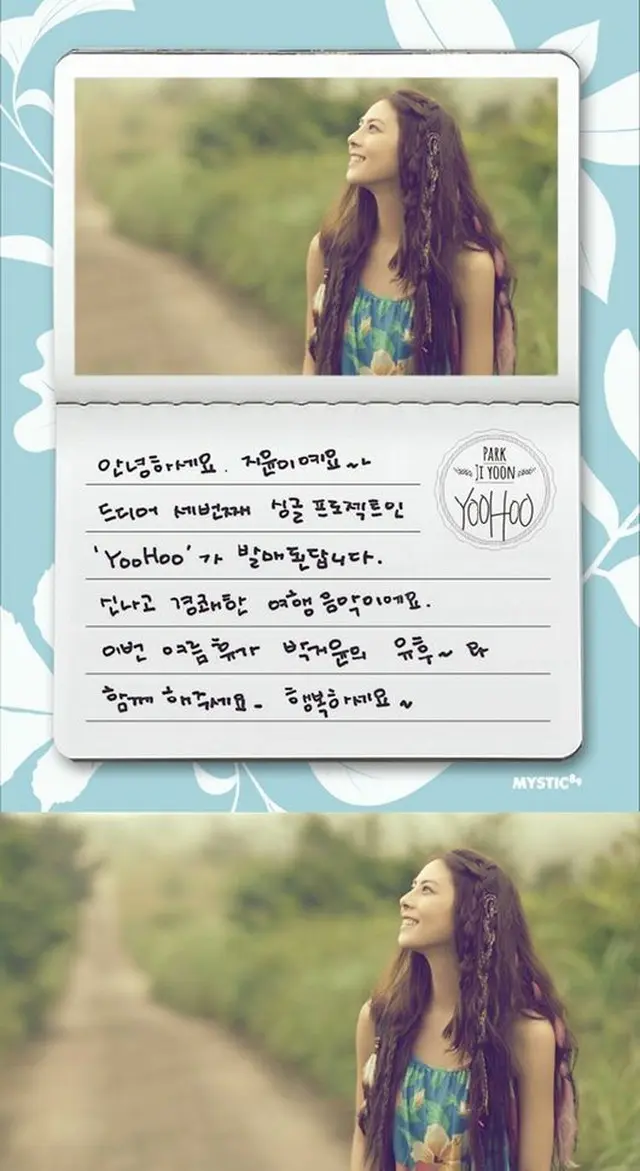 안녕하세요. 지윤이예요~~
PARK
JI YOON
YOOHOO
드디어 세번째 싱글 프로젝트인
'YooHoo'가 발매된답니다.
신나고 경쾌한 여행 음악이에요.
이번 여름휴가 박지윤의 유후~ 와
함께 해주세요- 행복하세요~
MYSTIC89